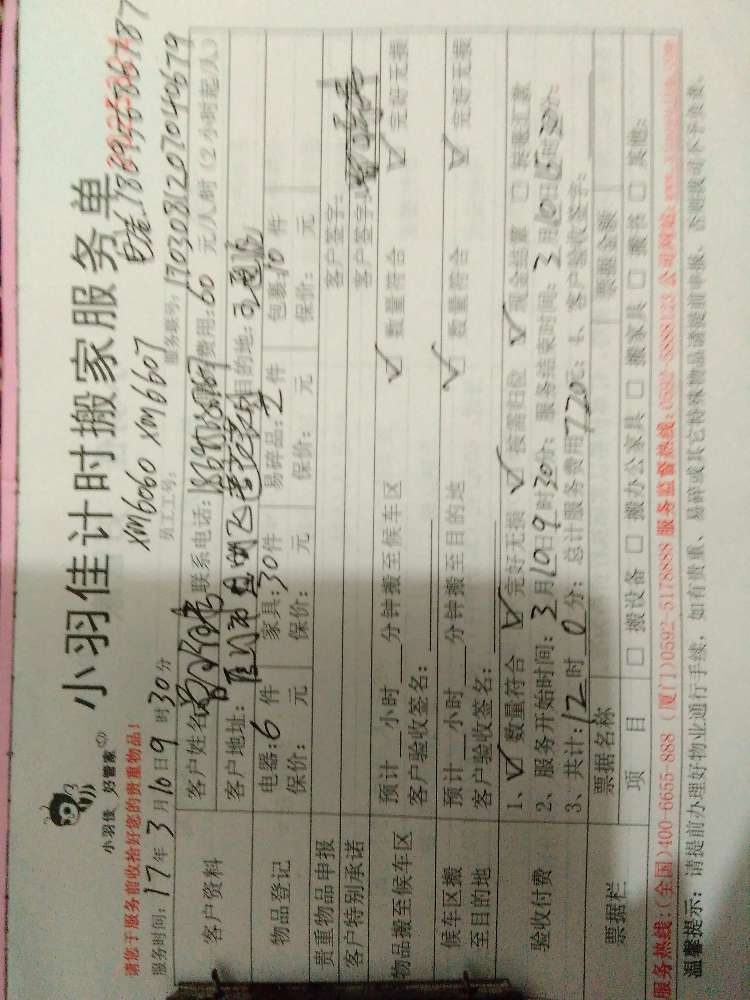 小羽佳 好管家
小羽佳计时搬家服务单
电话.18695686787
请您于服务前收拾好您的贵重物品!
xm6060 xm6607
服务时间: 17年3月10日9时30分
员工工号:
服务联号: 1703081207040679
客户资料
客户姓名
联系电话:
费用: 60 元/人/时 (2小时起/人)
客户地址:
目的地:
物品登记
电器: 6 件 家具: 30 件 易碎品: 2 件 包裹: 10 件
保价: 元 保价: 元 保价: 元 保价: 元
贵重物品申报
客户签字:
客户特别承诺
客户签字:
物品搬至候车区
预计 小时 分钟搬至候车区 ✓ 数量符合 ✓ 完好无损
客户验收签名:
候车区搬至目的地
预计 小时 分钟搬至目的地 ✓ 数量符合 ✓ 完好无损
客户验收签名:
验收付费
1、✓ 数量符合 ✓ 完好无损 ✓ 按需归位 ✓ 现金结算 □ 转账汇款
2、服务开始时间: 3月10日9时30分; 服务结束时间: 3月10日15时30分;
3、共计: 12时0分; 总计服务费用 720元; 4、客户验收签字:
票据栏
票据名称 票据金额
项目 □ 搬设备 □ 搬办公家具 □ 搬家具 □ 搬书 □ 其他:
服务热线:(全国)400-6655-888 (厦门)0592-5178888 服务监督热线:0592-5888123 公司网站:
温馨提示: 请提前办理好物业通行手续, 如有贵重、易碎或其它特殊物品请提前申报, 否则我司不予负责。